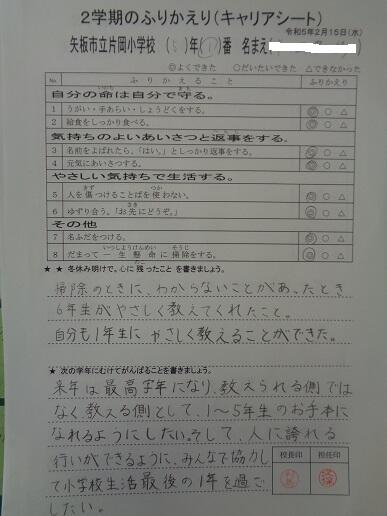 2学期のふりかえり(キャリアシート)
令和5年2月15日(水)
矢板市立片岡小学校 (5)年( )番 名まえ(
◎よくできた ○だいたいできた △できなかった
№ ふりかえること ふりかえり
自分の命は自分で守る。
1 うがい・手あらい・しょうどくをする。 ◎ ○ △
2 給食をしっかり食べる。 ◎ ○ △
気持ちのよいあいさつと返事をする。
3 名前をよばれたら、「はい。」としっかり返事をする。 ◎ ○ △
4 元気にあいさつする。 ◎ ○ △
やさしい気持ちで生活する。
5 人を傷つけることばを使わない。 ◎ ○ △
6 ゆずり合う。「お先にどうぞ。」 ◎ ○ △
その他
7 名ふだをつける。 ◎ ○ △
8 だまって一生懸命に掃除をする。 ◎ ○ △
★ ★ 冬休み明けで、心に残ったことを書きましょう。
掃除のときに、わからないことがあったとき
6年生がやさしく教えてくれたこと。
自分も1年生にやさしく教えることができた。
★ 次の学年にむけてがんばることを書きましょう。
来年は最高学年になり、教えられる側では
なく、教える側として、1〜5年生のお手本に
なれるようにしたい。そして、人に誇れる
行いができるように、みんなで協力し
て小学校生活最後の1年を過ご
したい。
校長印 担任印